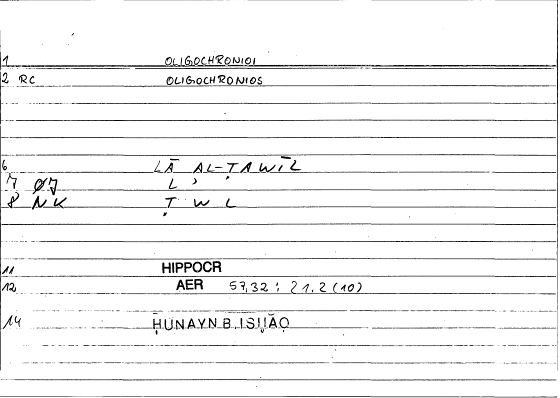 1 OLIGOCHRONIOI
2 RC OLIGOCHRONIOS
6 LĀ AL-ṬAWĪL
7 ØJ L ʾ
8 NK Ṭ W L
11 HIPPOCR
12 AER 57,32 : 21,2 (10)
14 ḤUNAYN B. ISḤĀQ